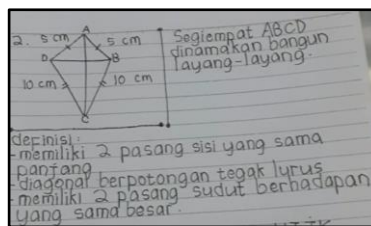 2. 5 cm A 5 cm
D B
10 cm 10 cm
C
Segiempat ABCD
dinamakan bangun
layang-layang.
definisi:
-memiliki 2 pasang sisi yang sama
panjang
-diagonal berpotongan tegak lurus
-memiliki 2 pasang sudut berhadapan
yang sama besar.